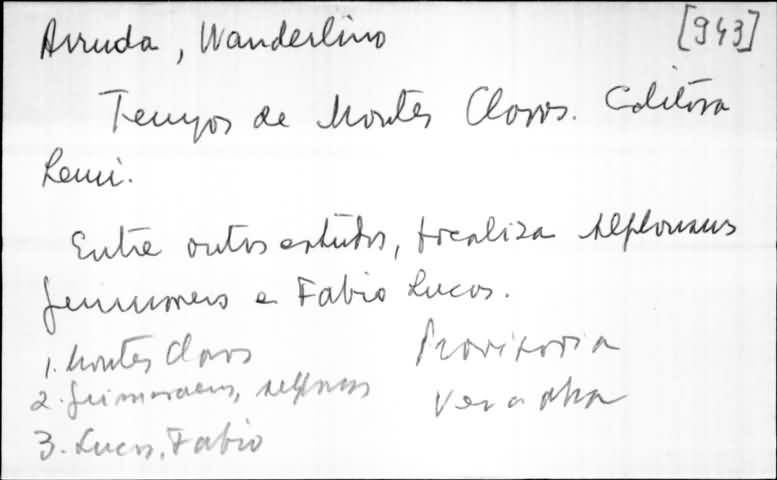 Arruda, Wanderlino [943]
Tempos de Montes Claros. Editora
Lemi.
Entre outros estudos, focaliza Alphonsus
Guimaraens e Fabio Lucas.
1. Montes Claros Provisoria
2. Guimaraens, Alphonsus
3. Lucas, Fabio